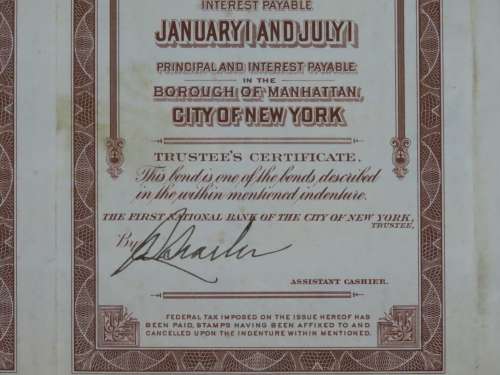 INTEREST PAYABLE
JANUARY 1 AND JULY 1
PRINCIPAL AND INTEREST PAYABLE
IN THE
BOROUGH OF MANHATTAN,
CITY OF NEW YORK
TRUSTEE'S CERTIFICATE.
This bond is one of the bonds described
in the within mentioned indenture.
THE FIRST NATIONAL BANK OF THE CITY OF NEW YORK,
TRUSTEE,
By
ASSISTANT CASHIER.
FEDERAL TAX IMPOSED ON THE ISSUE HEREOF HAS
BEEN PAID, STAMPS HAVING BEEN AFFIXED TO AND
CANCELLED UPON THE INDENTURE WITHIN MENTIONED.